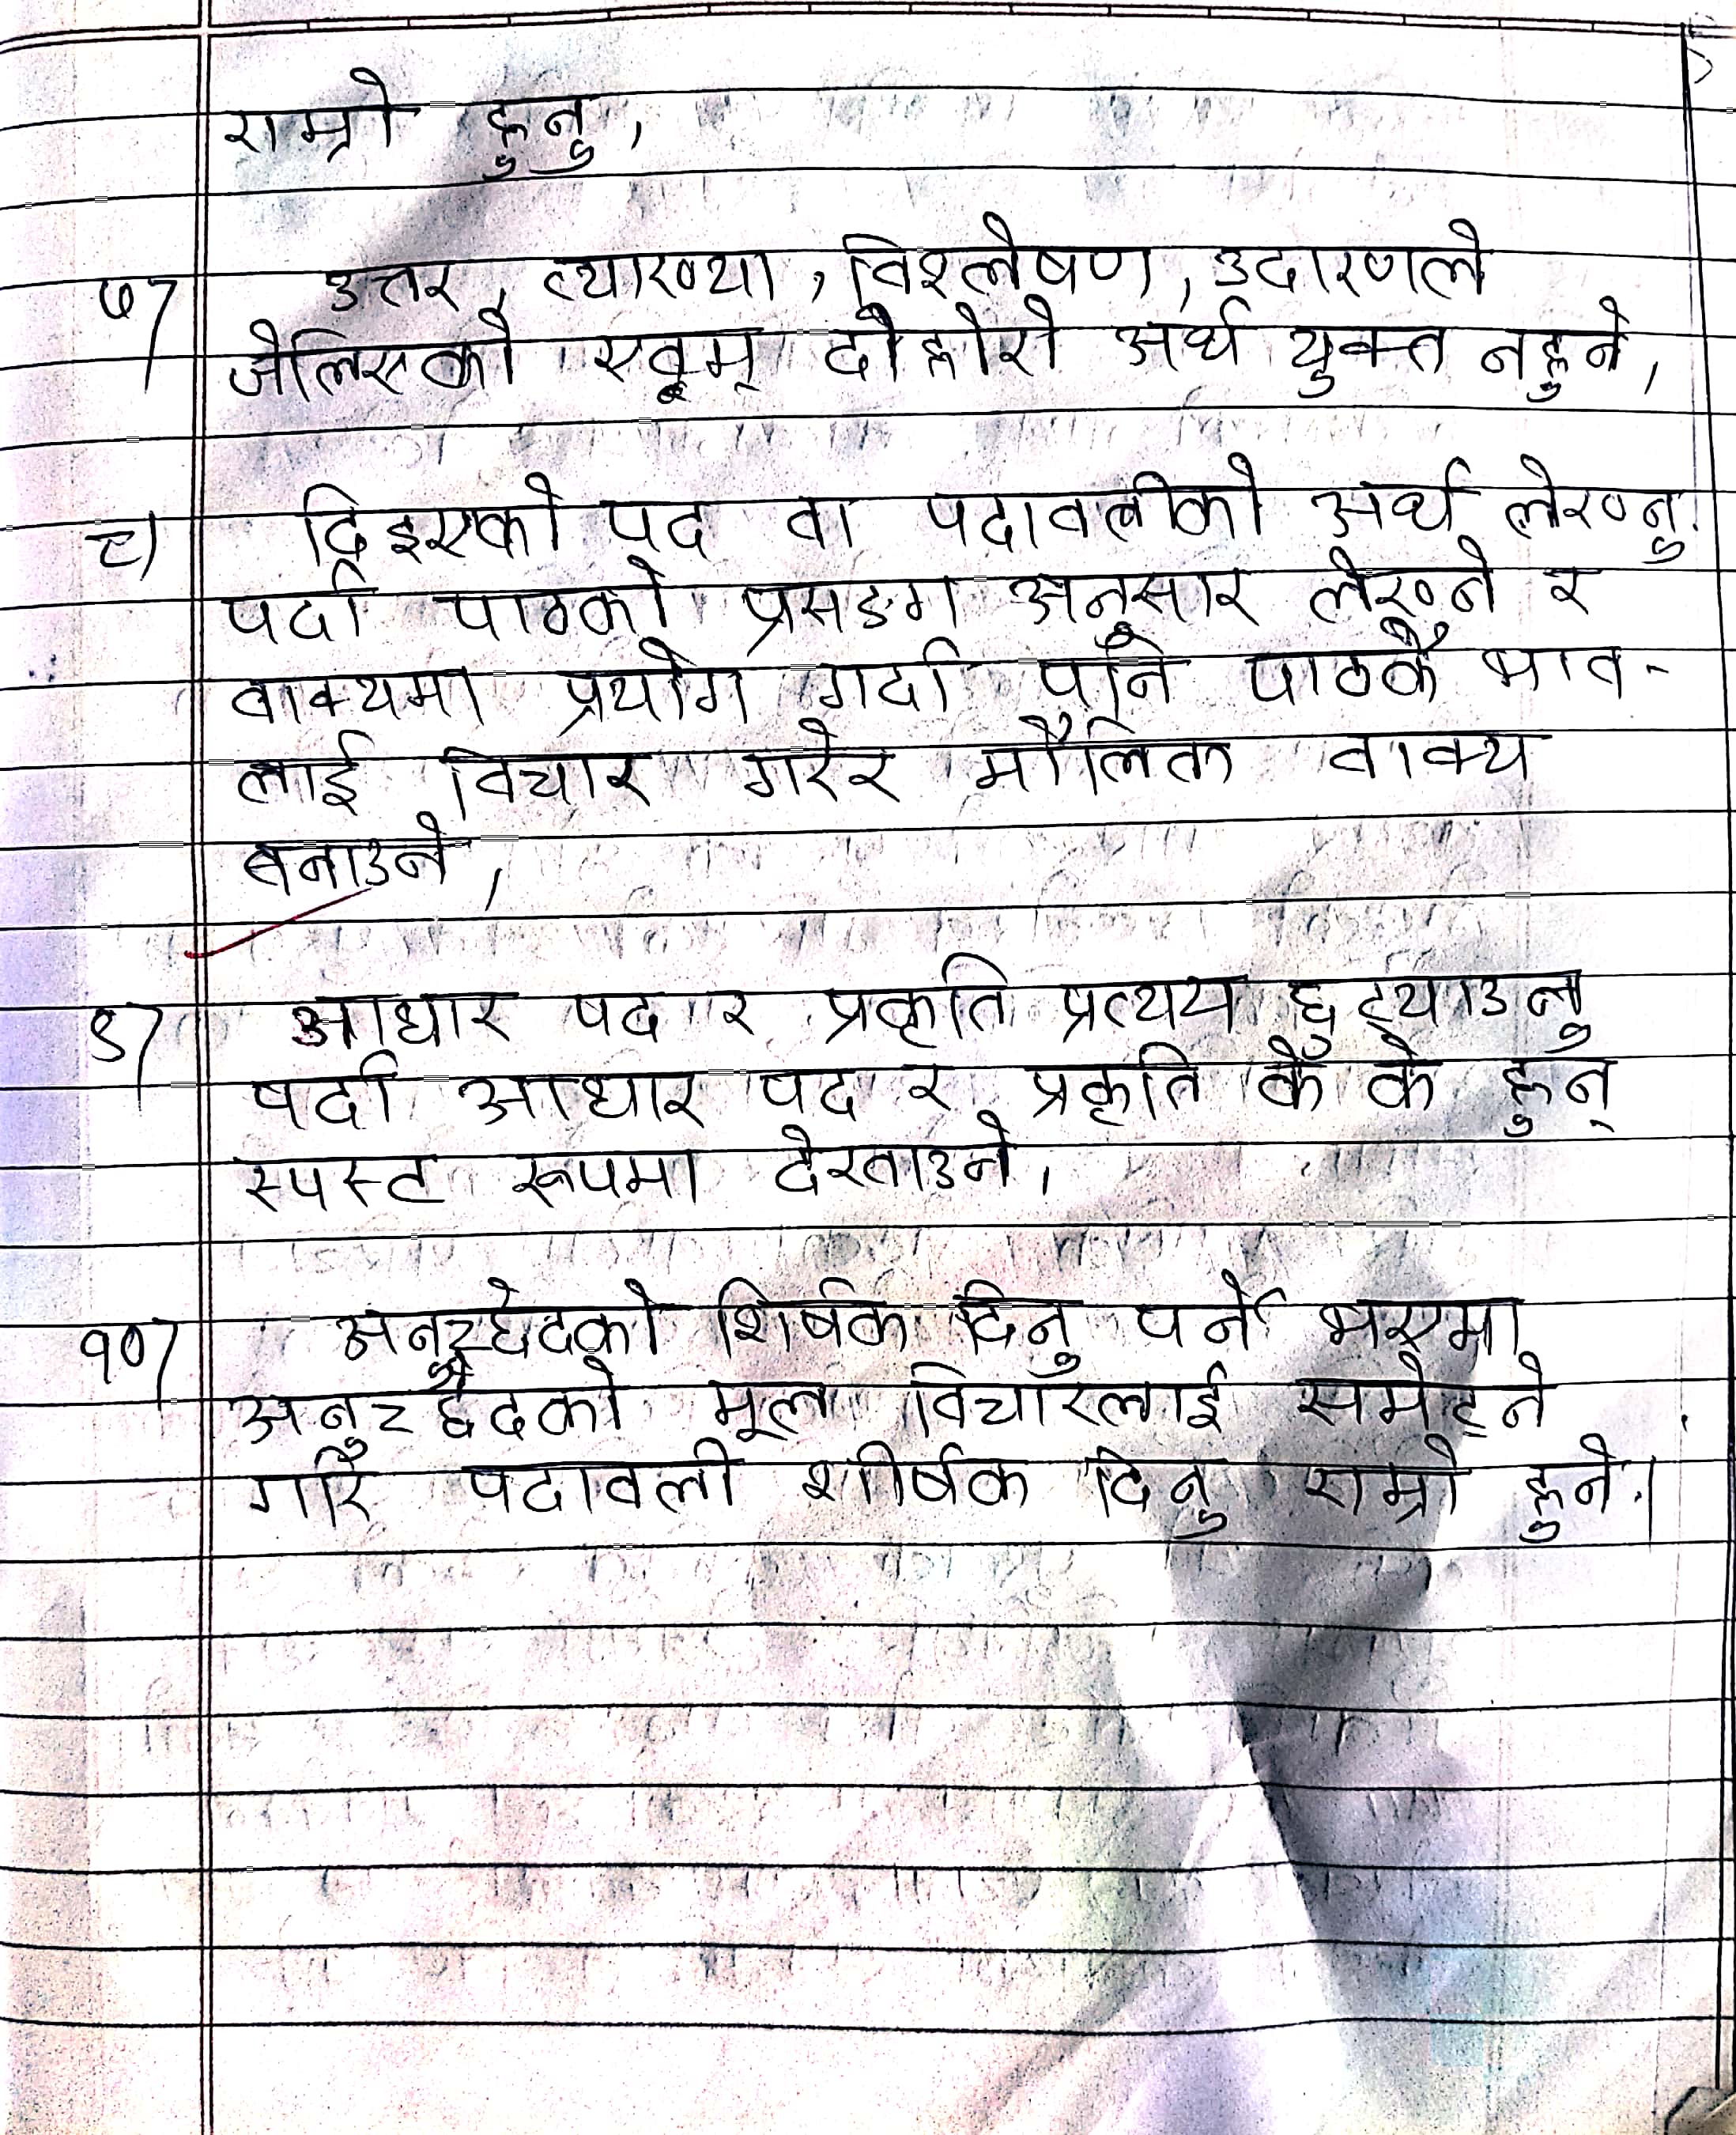 राम्रो हुनु,
७) उत्तर, व्याख्या, विश्लेषण, उदारणले
जेलिएको एवूम् दोहोरो अर्थ युक्त नहुने,
८) दिइएको पद वा पदावलीको अर्थ लेख्नु
पर्दा पाठको प्रसङग अनुसार लेख्ने र
वाक्यमा प्रयोग गर्दा पनि पाठकै भाव-
लाई विचार गरेर मौलिक वाक्य
बनाउने,
९) आधार पद र प्रकृति प्रत्यय छुट्याउनु
पर्दा आधार पद र प्रकृति के के हुन्
स्पस्ट रूपमा देखाउने।
१०) अनुच्छेदको शिर्षक दिनु पर्ने भएमा
अनुच्छेदको मूल विचारलाई समेट्ने
गरि पदावली शीर्षक दिनु राम्रो हुने।